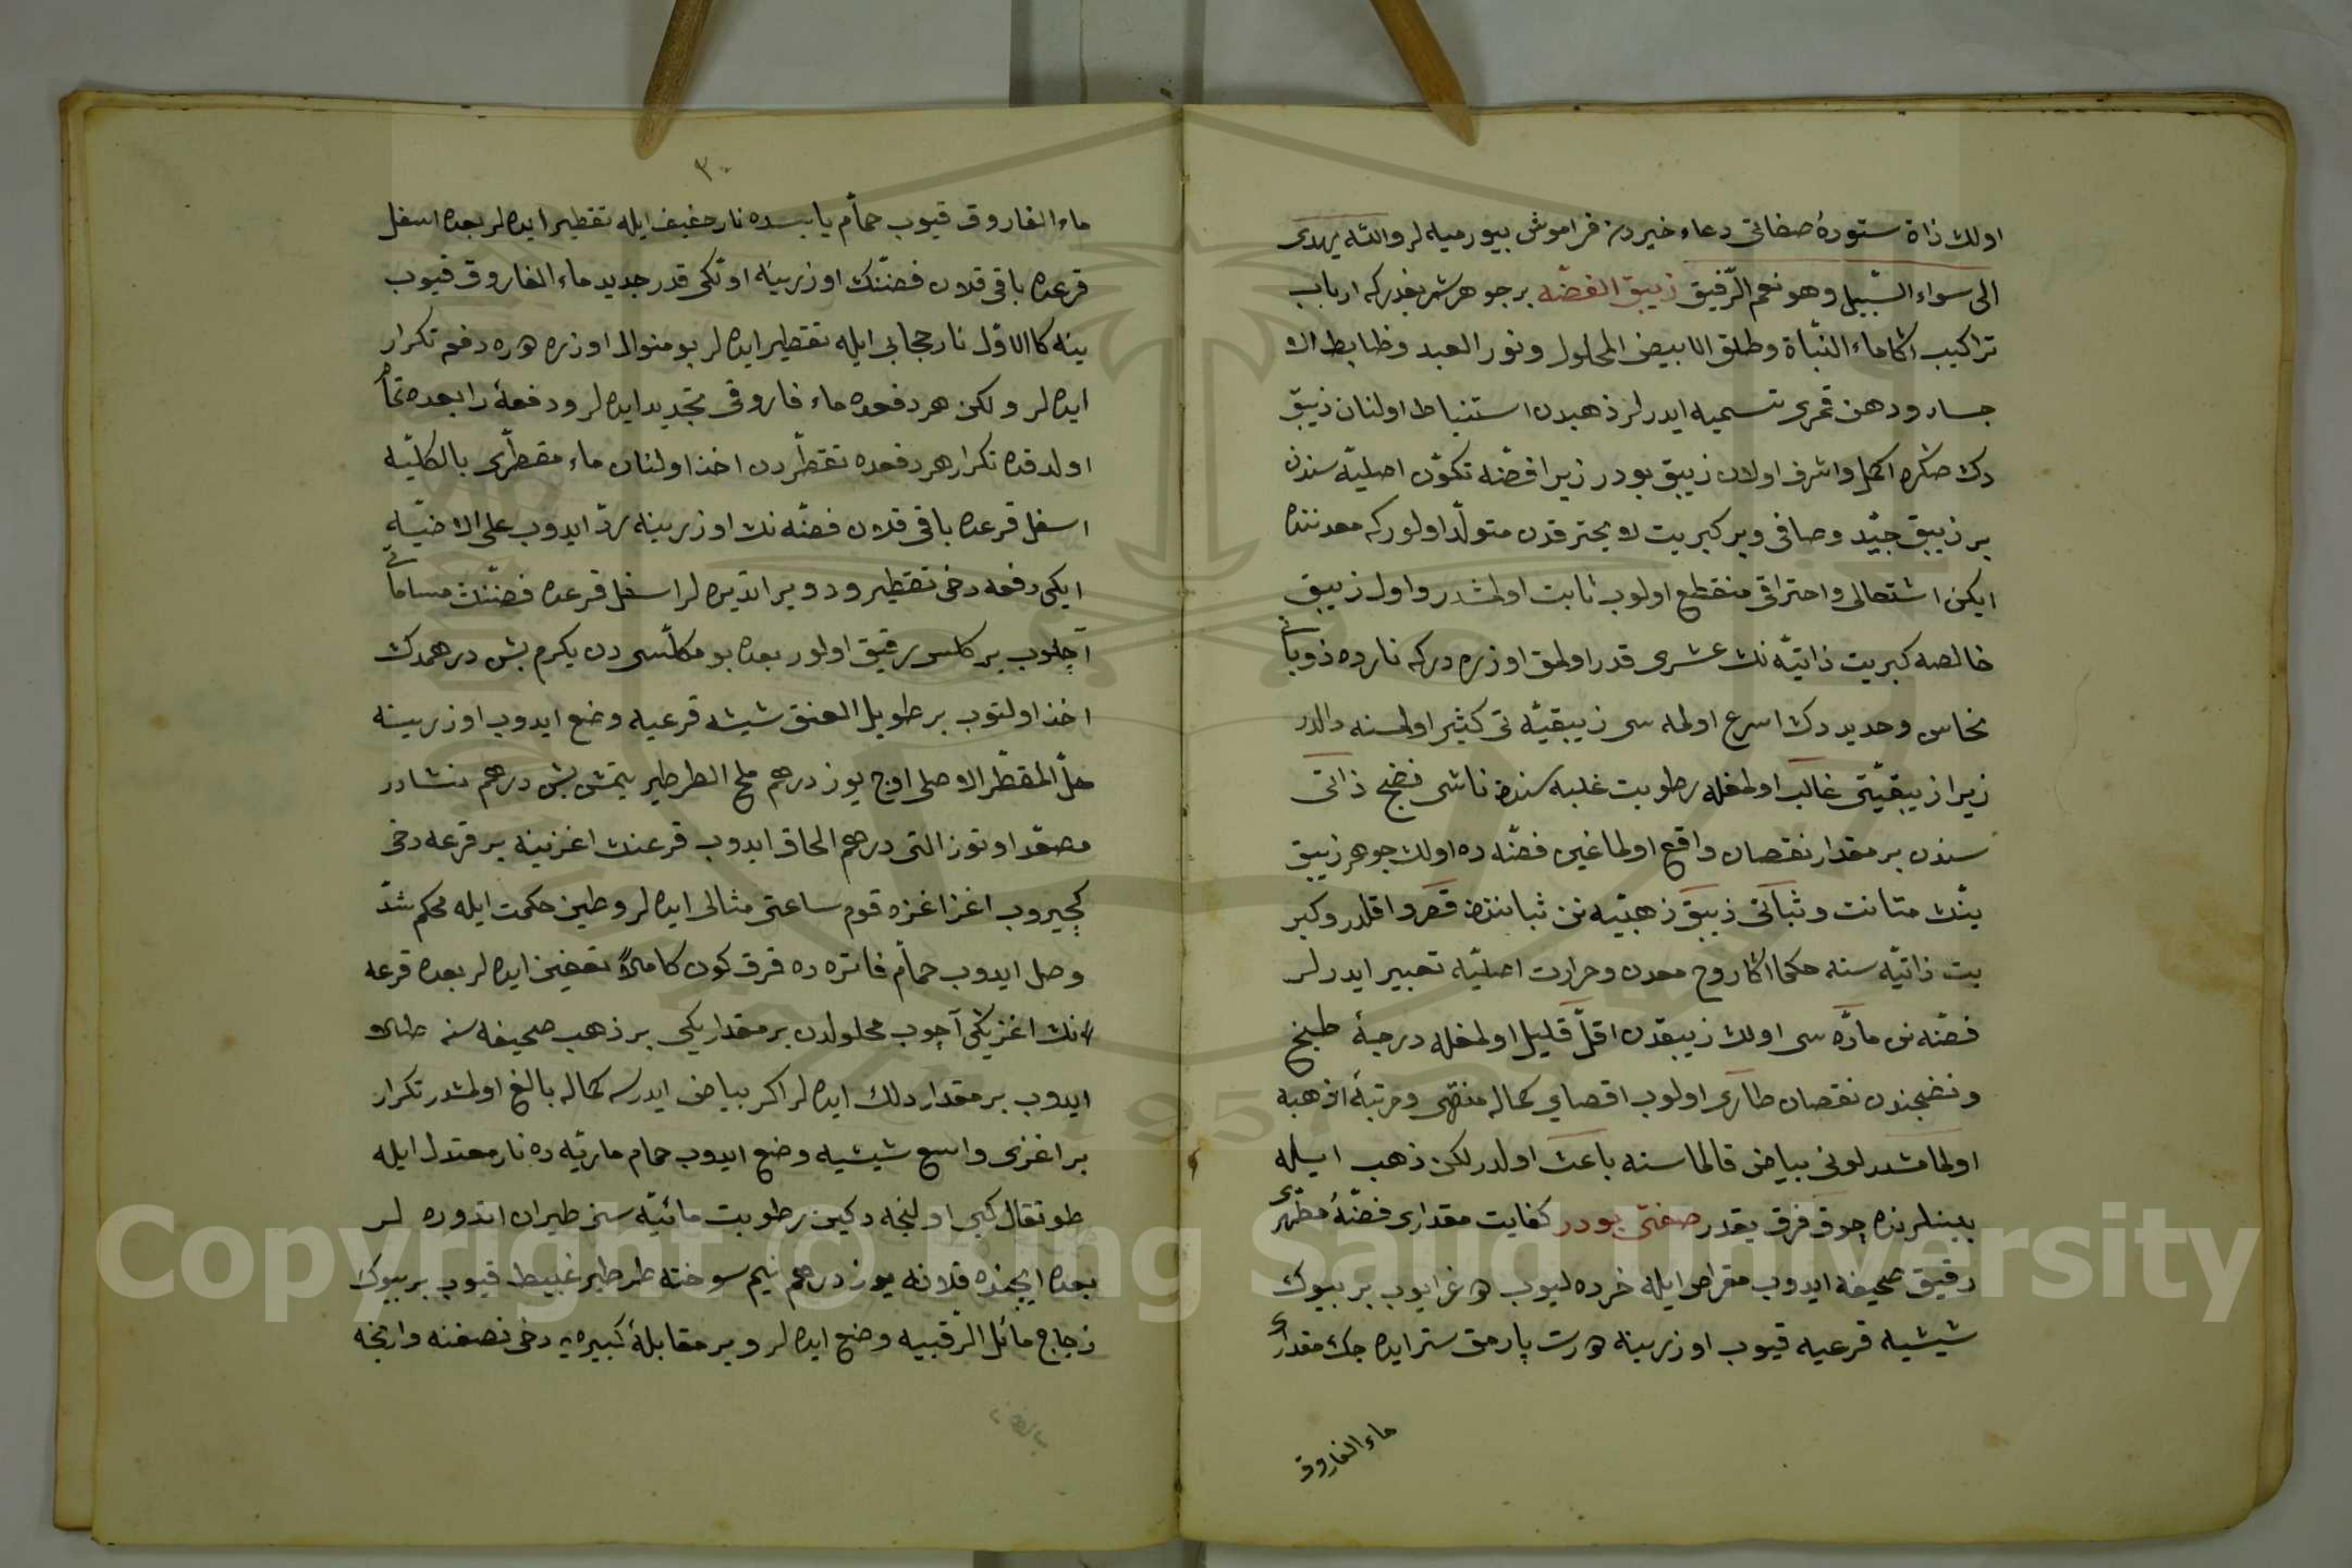 اولك ذاة ستودۀ صفاتى دعاء خيردن فراموش بيورميه لر والله يهدى
الى سواء السّبيل وهو نعم الرّفيق زيبق الفضّه بر جوهر شريفدركه ارباب
تراكيب اكا ماء النّباة وطلق الابيض المحلول ونور العبد وظابط الا
جساد ودهن قمرى تسميه ايدرلر ذهبدن استنباط اولنان زيبق
دن صكره اكمل واشرف اولان زيبق بودر زيرا فضّه تكوّن اصليّه سندن
بر زيبق جيّد وصافى وبر كبريت لا يحترقدن متولّد اولوركه معدننده
ايكن اشتعالى واحتراقى منقطع اولوب ثابت اولمشدر واول زيبق
خالصه كبريت ذاتيّه نك عشرى قدر اولمق اوزره دركه نارده ذوبانى
نحاس وحديددن اسرع اولمه سى زيبقيّه تى كثير اولمسنه دالدر
زيرا زيبقيّتى غالب اولمغله رطوبت غلبه سندن ناشى نضج ذاتى
سندن بر مقدار نقصان واقع اولماغين فضّه ده اولان جوهر زيبق
ينك متانت وثباتى زيبق ذهبيّه نن ثباتندن قصر واقلدر وكبر
يت ذاتيّه سنه حكما اكا روح معدن وحرارت اصليّه تعبير ايدرلر
فضّه نن مادّه سى اولان زيبقدن اقلّ قليل اولمغله درجۀ طبخ
ونضجندن نقصان طارى اولوب اقصاى كماله منتهى ومرتبۀ اذهبه
اولمامشدر لونى بياض قالماسنه باعث اولدر لكن ذهب ايله
بينلرنده چوق فرق يقدر صفتى بودر كفايت مقدارى فضّۀ مطهّرى
رقيق صحيفه ايدوب مقراض ايله خرده ليوب طوغرايوب بر بيوك
شيشيه قرعيه قيوب اوزرينه درت پارمق ستر ايده جك مقدارى
ماء الفاروق
٣٠
ماء الفاروق قيوب حمّام يابسده نار خفيف ايله تقطير ايده لر بعده اسفل
قرعده باقى قلان فضّتك اوزرينه اوّلكى قدر جديد ماء الفاروق قيوب
ينه كالاوّل نار حجابى ايله تقطير ايده لر بو منوال اوزره دفعه تكرار
ايده لر ولكن هر دفعده ماء فاروقى تجديد ايده لر ودفعۀ رابعده تمام
اولدقده تكرار هر دفعده تقطّردن اخذ اولنان ماء مقطّرى بالكلّيه
اسفل قرعده باقى قلان فضّه نك اوزرينه ردّ ايدوب على الاضيّه
ايكى دفعه دخى تقطير ودوير اتديره لر اسفل قرعده فضّتك مساماتى
آچلوب بر كلس رقيق اولور بعده بو مكلّسدن يكرم بش درهمدك
اخذ اولنوب بر طويل العنق شيشه قرعيه وضع ايدوب اوزرينه
خلّ المقطّر الاصلى اوچ يوز درهم ملح الطرطير يتمش بش درهم نشادر
مصعّد اوتوز التى درهم الحاق ايدوب قرعنك اغزينه بر قرعه دخى
كچيروب اغز اغزه قوم ساعتى مثالى ايده لر وطين حكمت ايله محكم شدّ
وصل ايدوب حمّام فاتره ده قرق كون كاملاً تعفين ايده لر بعده قرعه
نك اغزينى آچوب محلولدن بر مقداريكى بر ذهب صحيفه سنه طلاو
ايدوب بر مقدار دلك ايده لر اكر بياض ايدرسه كماله بالغ اولمشدر تكرار
بر اغزى واسع شيشيه وضع ايدوب حمام ماريّه ده نار معتدل ايله
طوتقال كبى اولنجه دكين رطوبت مائيّه سن طيران اتدوره لر
بعده ايچنده قلانه يوز درهم نيم سوخته طرطير غبيط قيوب بر بيوك
زجاج مائل الرّقبيه وضع ايده لر وبر مقابلۀ كبيره يه دخى نصفنه وارنجه